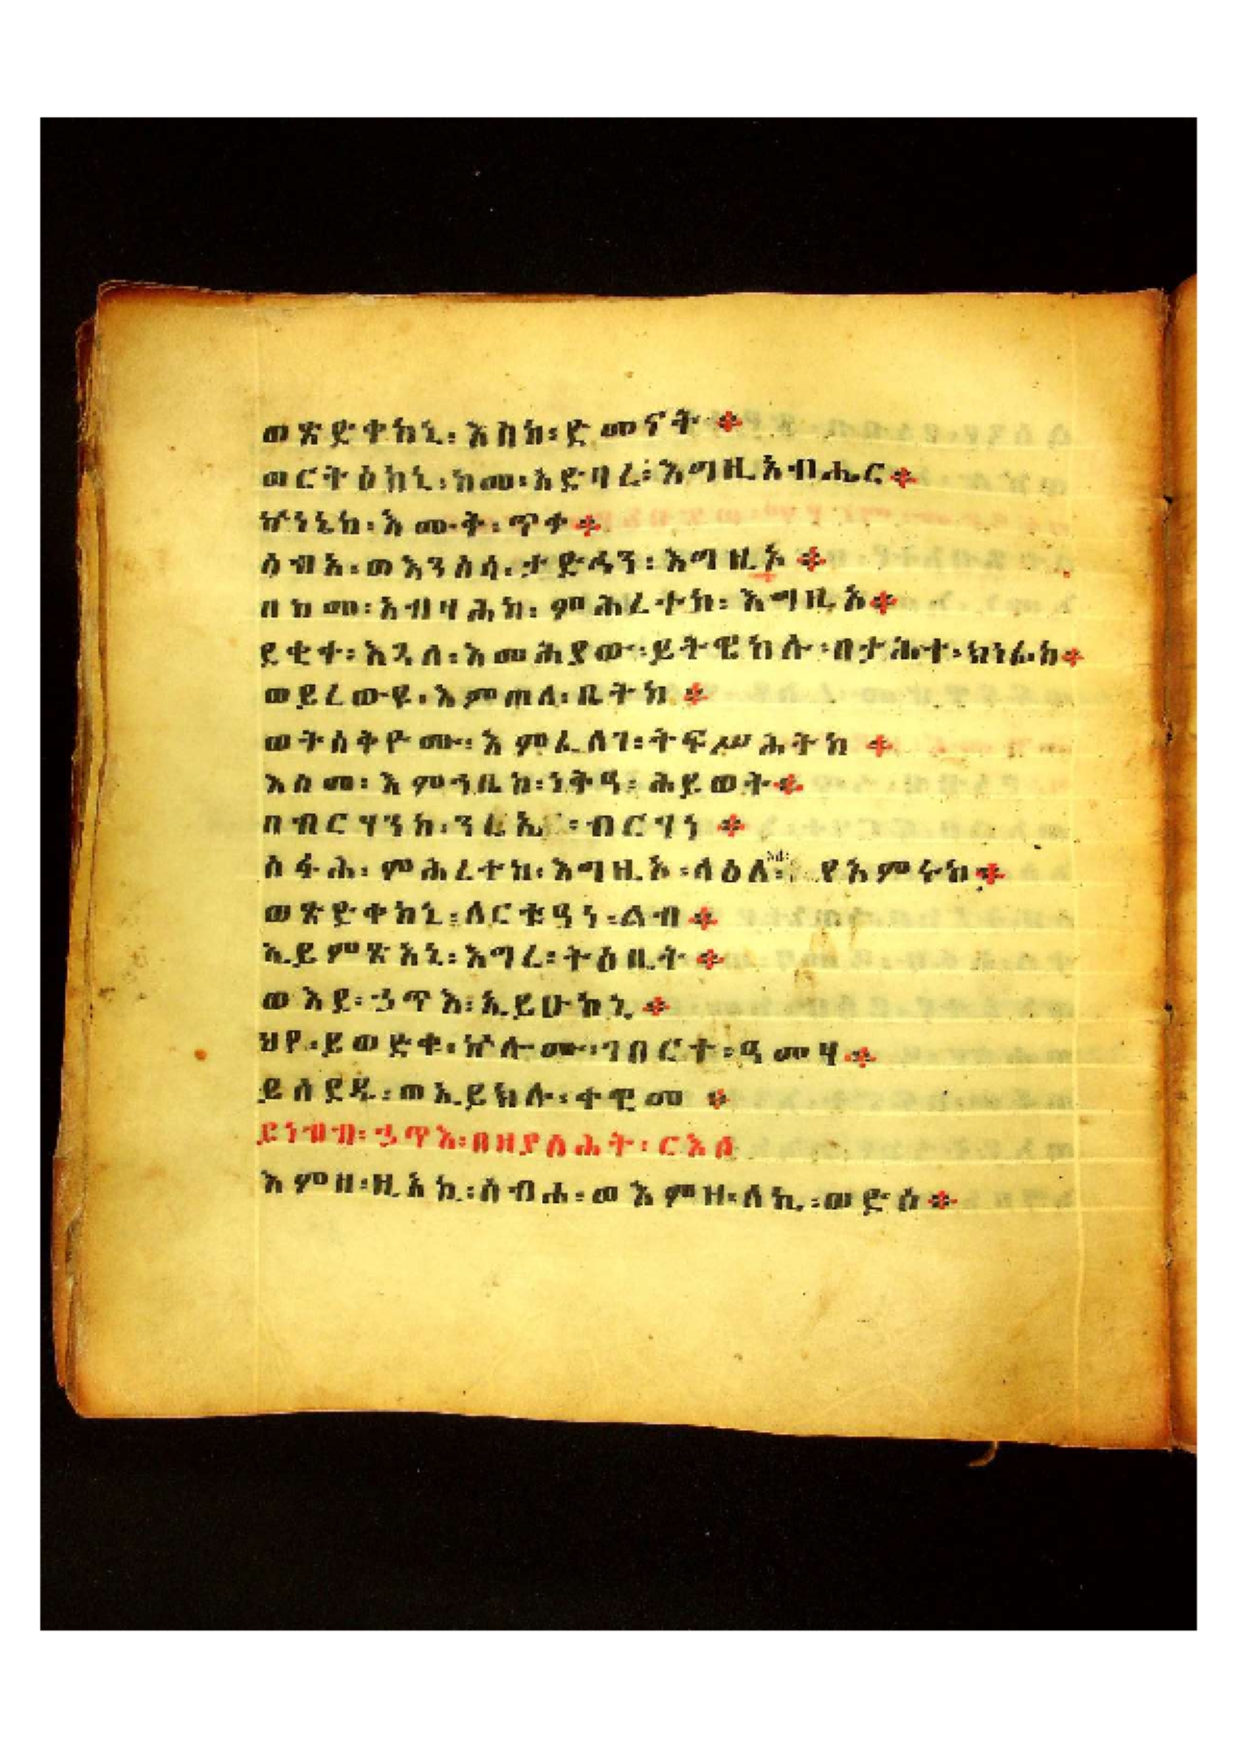 ወጽድቀከኒ፡ እስከ፡ ደመናት ።
ወርትዕከኒ፡ ከመ፡ አድባረ፡ እግዚአብሔር ።
ኵነኔከ፡ እሙቅ፡ ጥቀ ።
ሰብአ፡ ወእንስሳ፡ ታድኅን፡ እግዚኦ ።
በከመ፡ አብዛሕከ፡ ምሕረተከ፡ እግዚአ ።
ደቂቀ፡ እጓለ፡ እመሕያው፡ ይትዌከሉ፡ በታሕተ፡ ክነፊከ ።
ወይረውዩ፡ እምጠለ፡ ቤትከ ።
ወትሰቅዮሙ፡ እምፈለገ፡ ትፍሥሕትከ ።
እስመ፡ እምኀቤከ፡ ነቅዓ፡ ሕይወት ።
በብርሃንከ፡ ንሬኢ፡ ብርሃነ ።
ስፋሕ፡ ምሕረተከ፡ እግዚኦ፡ ላዕለ፡ እለ፡ የአምሩከ ።
ወጽድቀከኒ፡ ለርቱዓነ፡ ልብ ።
ኢይምጽአኒ፡ እግረ፡ ትዕቢት ።
ወእደ፡ ኃጥእ፡ ኢይሁከኒ ።
ህየ፡ ይወድቁ፡ ኵሎሙ፡ ገበርተ፡ ዓመፃ ።
ይሰደዱ፡ ወኢይክሉ፡ ቀዊመ ።
ይነብብ፡ ኃጥእ፡ በዘያስሕት፡ ርእሰ
እምዘ፡ ዚአኪ፡ ስብሐ፡ ወእምዝ፡ ለኪ፡ ወድሰ ።